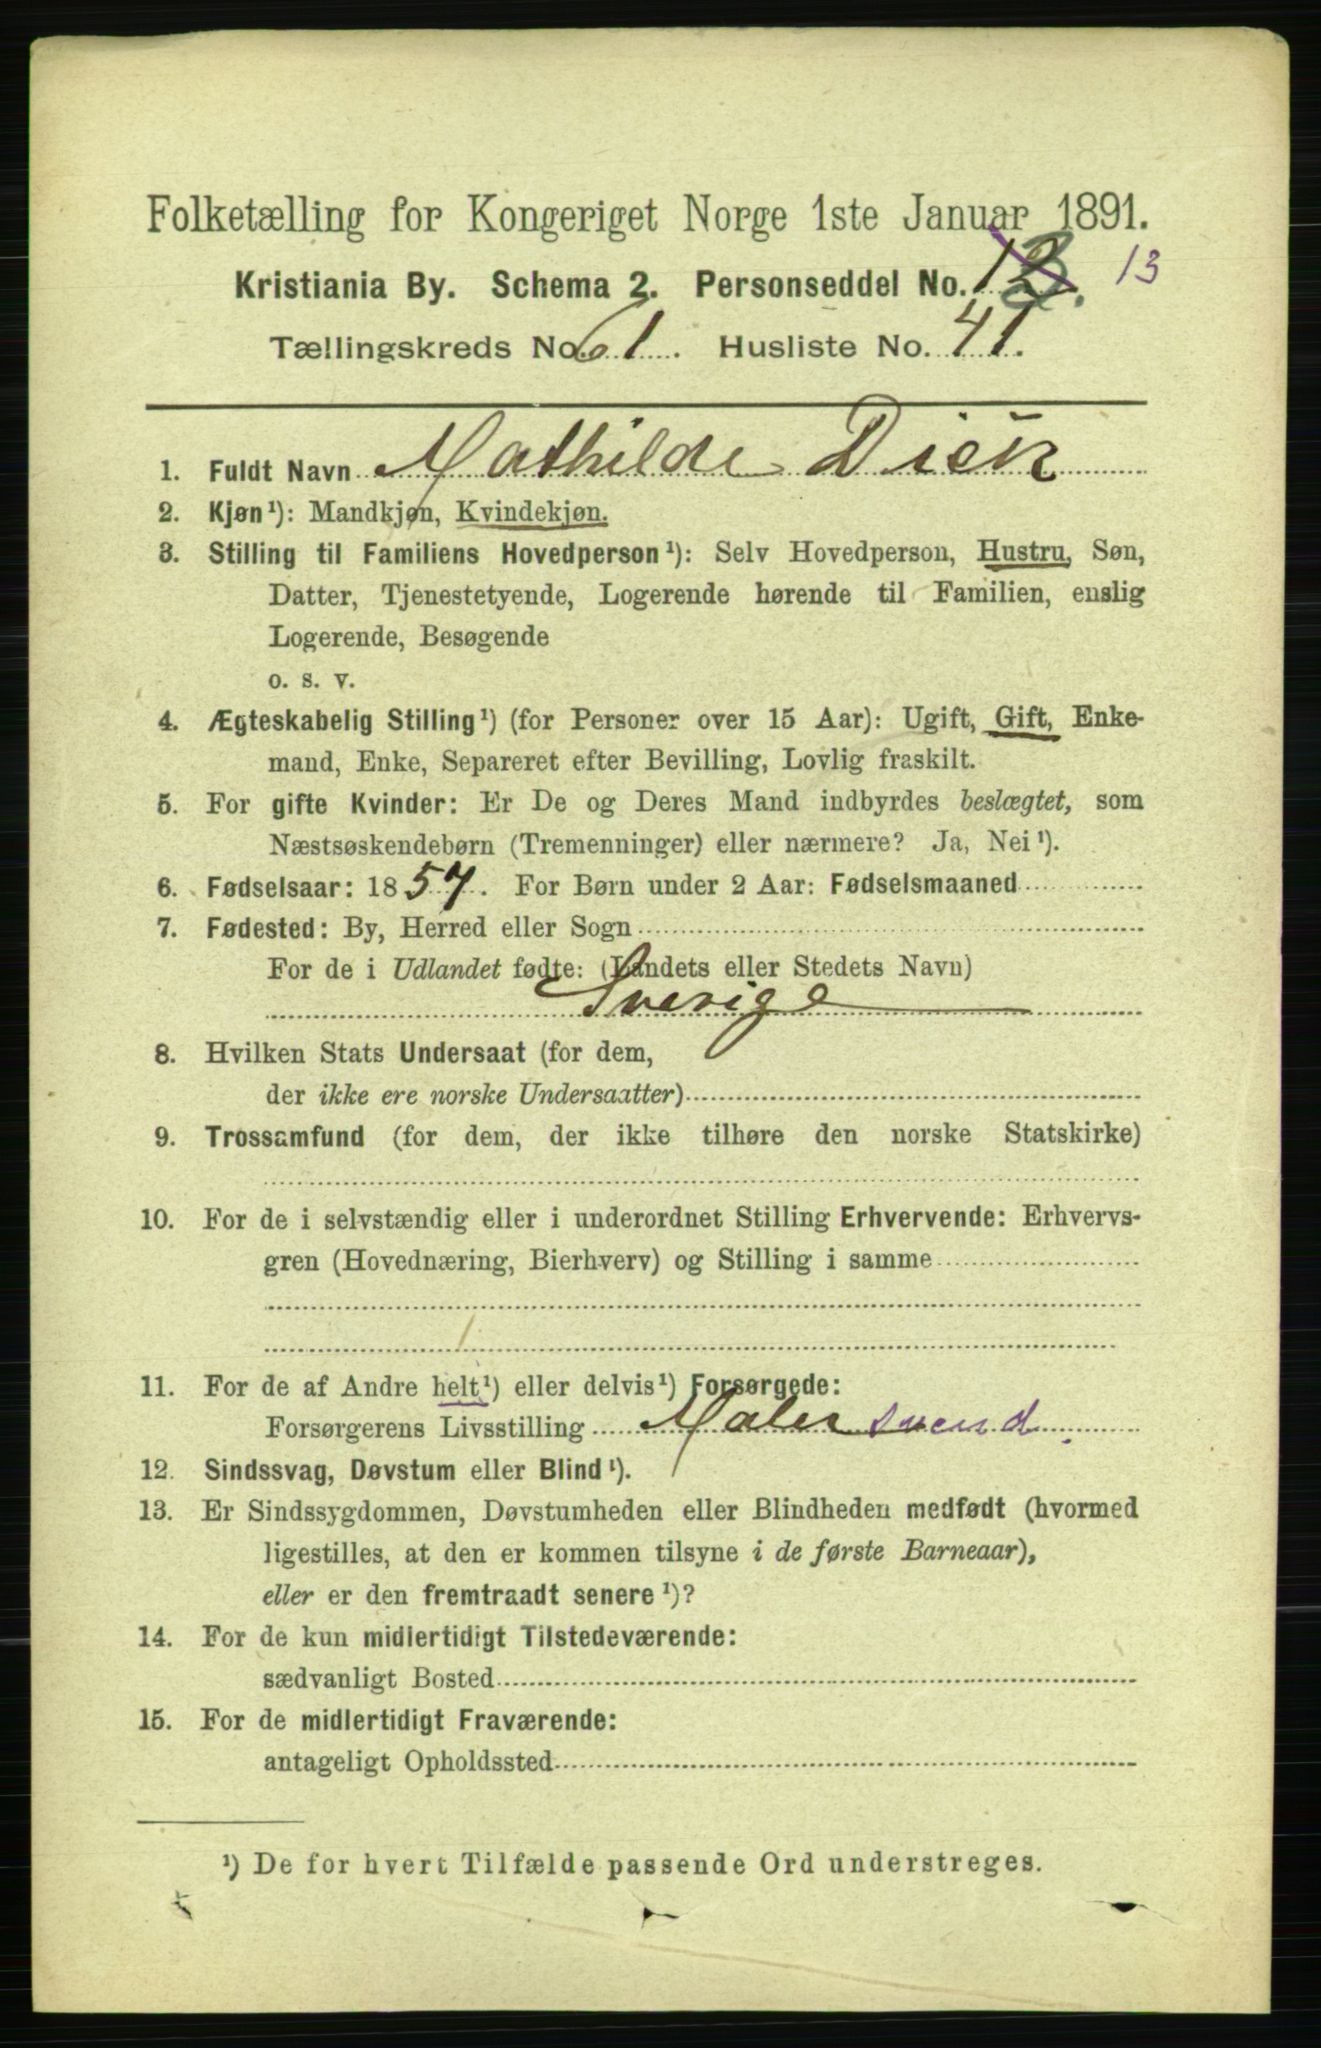 Folketælling for Kongeriget Norge 1ste Januar 1891.
Kristiania By. Schema 2. Personseddel No. 12. 13
Tællingskreds No. 61. Husliste No. 41.
1. Fuldt Navn Mathilde Dick
2. Kjøn¹): Mandkjøn, Kvindekjøn.
3. Stilling til Familiens Hovedperson¹): Selv Hovedperson, Hustru, Søn,
Datter, Tjenestetyende, Logerende hørende til Familien, enslig
Logerende, Besøgende
o. s. v.
4. Ægteskabelig Stilling¹) (for Personer over 15 Aar): Ugift, Gift, Enke-
mand, Enke, Separeret efter Bevilling, Lovlig fraskilt.
5. For gifte Kvinder: Er De og Deres Mand indbyrdes beslægtet, som
Næstsøskendebørn (Tremenninger) eller nærmere? Ja, Nei¹).
6. Fødselsaar: 1857. For Børn under 2 Aar: Fødselsmaaned
7. Fødested: By, Herred eller Sogn
For de i Udlandet fødte: (Landets eller Stedets Navn)
Sverige
8. Hvilken Stats Undersaat (for dem,
der ikke ere norske Undersaatter)
9. Trossamfund (for dem, der ikke tilhøre den norske Statskirke)
10. For de i selvstændig eller i underordnet Stilling Erhvervende: Erhvervs-
gren (Hovednæring, Bierhverv) og Stilling i samme
11. For de af Andre helt¹) eller delvis¹) Forsørgede:
Forsørgerens Livsstilling Maler svend.
12. Sindssvag, Døvstum eller Blind¹).
13. Er Sindssygdommen, Døvstumheden eller Blindheden medfødt (hvormed
ligestilles, at den er kommen tilsyne i de første Barneaar),
eller er den fremtraadt senere¹)?
14. For de kun midlertidigt Tilstedeværende:
sædvanligt Bosted
15. For de midlertidigt Fraværende:
antageligt Opholdssted
¹) De for hvert Tilfælde passende Ord understreges.